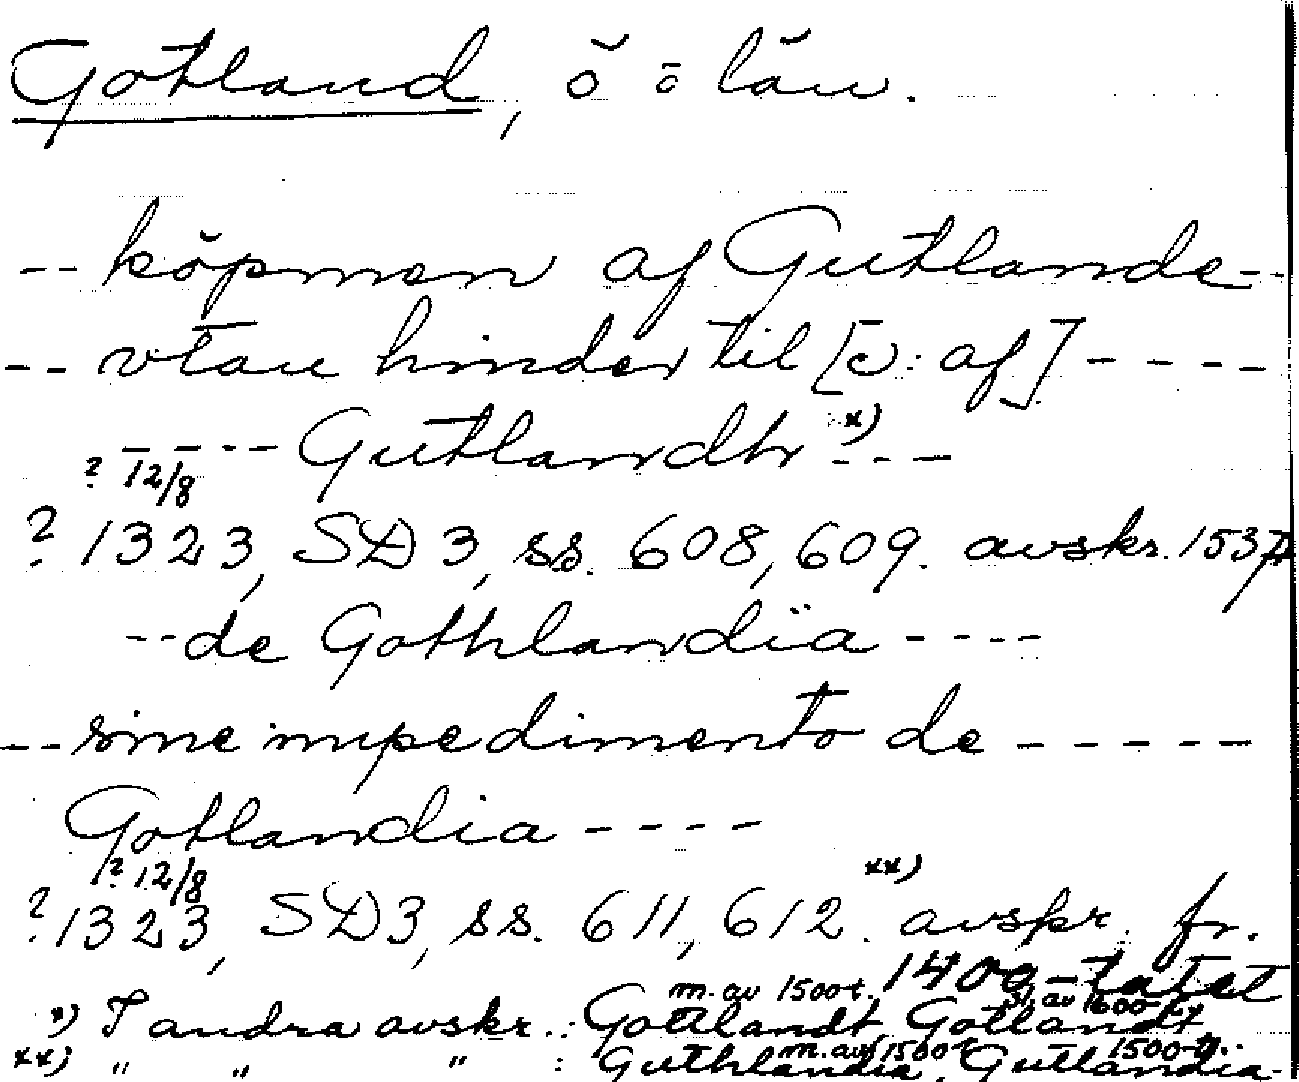 Gotland, ö o län.
-- köpmen af Gutlande --
-- vtan hinder til [ɔ: af] ----
----- Gutlandh x) ---
? 12/8
? 1323, SD 3, ss. 608, 609. avskr. 1537
-- de Gothlandia ----
-- sine impedimento de -----
Gotlandia ----
? 12/8
? 1323, SD 3, ss. 611, 612. xx) avskr. fr.
1400-talet
m. av 1500t. sl. av 1600-t.
x) I andra avskr.: Gottlandt, Gotlandt
m. av 1500t 1500-t.
xx) " " " : Guthlandia, Gutlandia